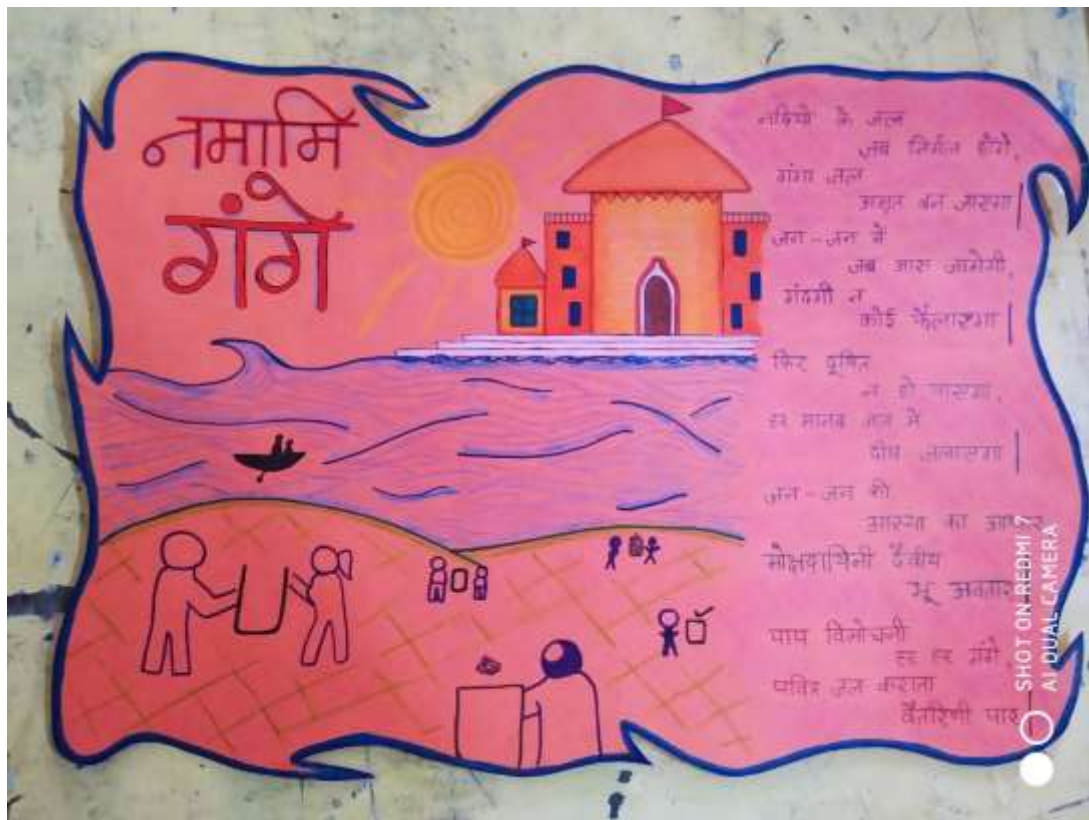 नमामि
गंगे
नदियो के जल
जब निर्मल होंगे,
गंगा जल
अमृत बन जाएगा|
जन-जन में
जब आस जागेगी,
गंदगी न
कोई फैलाएगा|
फिर दूषित
न हो पाएगा,
हर मानव मन में
दीप जलाएगा|
जन-जन की
आस्था का आधार
मोक्षदायिनी दैवीय
भू अवतार
पाप विमोचनी
हर हर गंगे,
पवित्र जल कराता
वैतरिणी पार|
SHOT ON REDMI 7
AI DUAL CAMERA